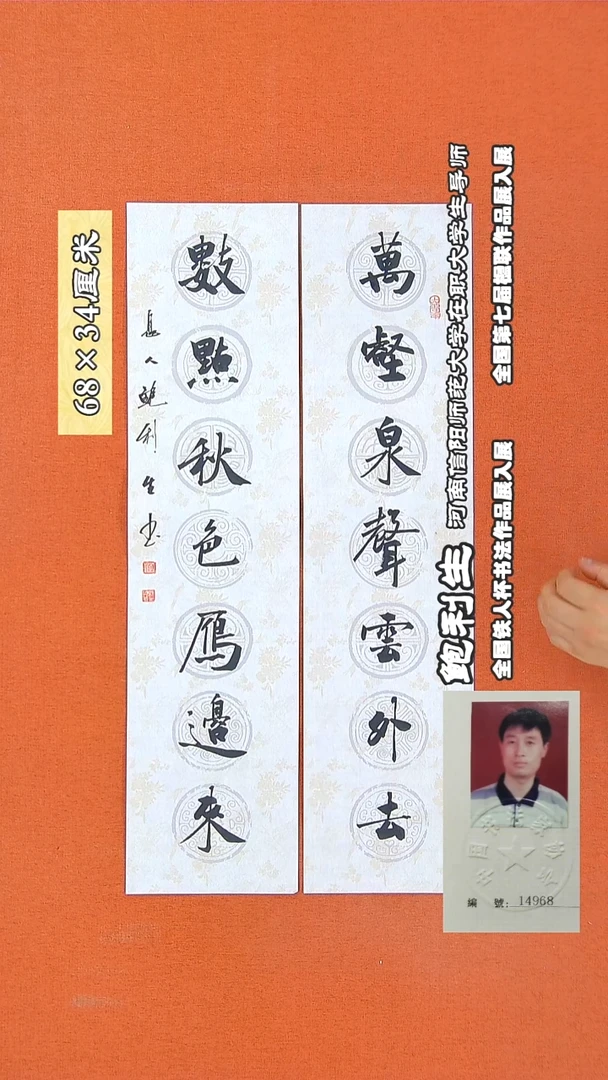 萬壑泉聲雲外去
數點秋色雁邊來
長人鮑利生书
68×34厘米
鲍利生 河南信阳师范大学在职大学生导师
全国铁人杯书法作品展入展 全国第七届楹联作品展入展
編號：14968